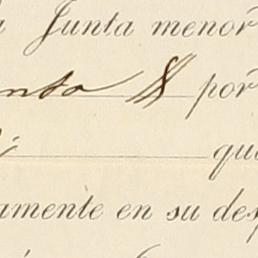 Junta menor
nto $ por
que
amente en su des